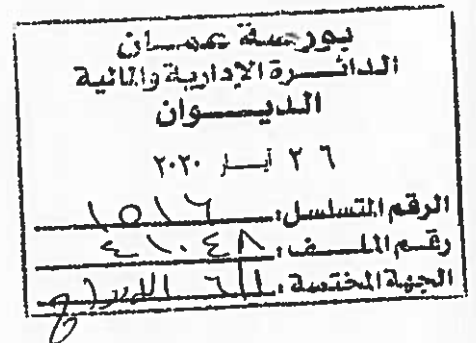 بورصة عمان
الدائرة الإدارية والمالية
الديوان
٢٦ أيار ٢٠٢٠
الرقم المتسلسل: ١٥١٦
رقم الملف: ٤١٠٤٨
الجهة المختصة: